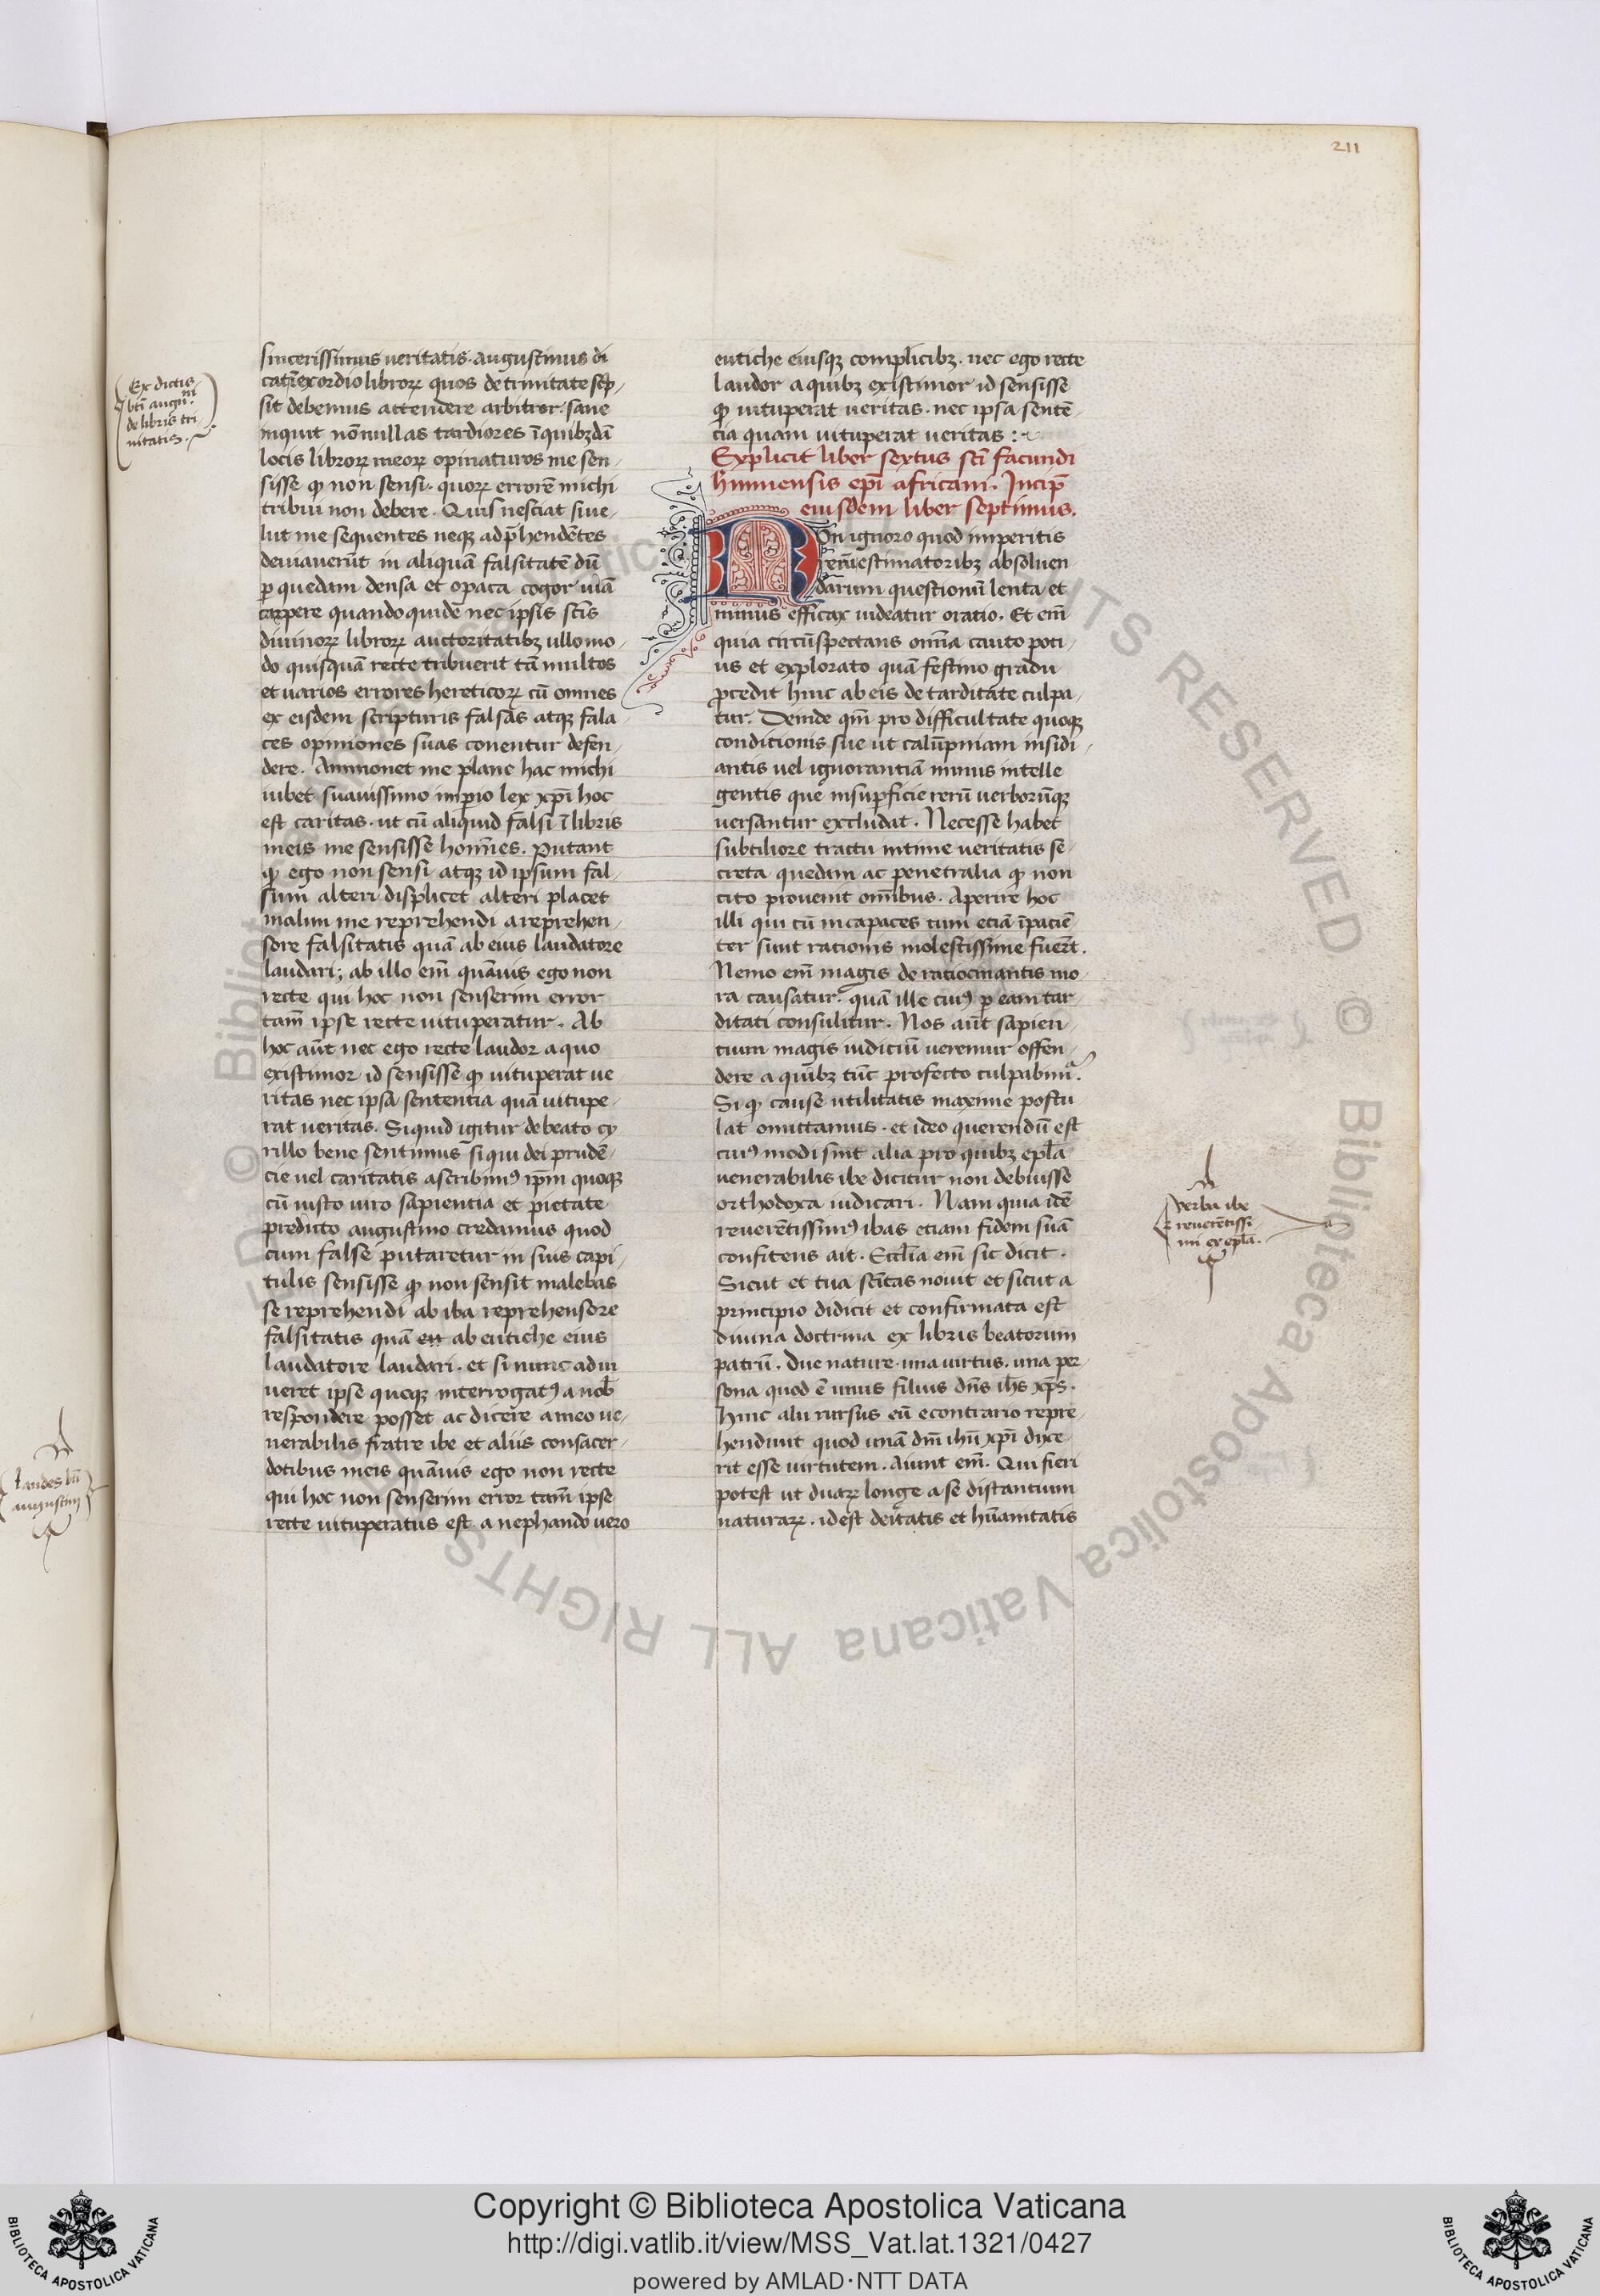 211
Ex dictis
bti augni
de libris tri
nitatis.
sincerissimus veritatis. augustinus di
cat. i exordio librorꝝ quos de trinitate scp̄
sit debemus attendere arbitror. sane
inquit nōnullas tardiores ī quibꝫdā
locis librorꝝ meorꝝ opinaturos me sen
sisse qͥ non sensi. quorꝝ errorē michi
tribui non debere. Quis nesciat si ue
lut me sequentes neqꝫ adp̄hendētes
deuiauerūt in aliquam falsitatē dū
ꝑ quedam densa et opaca cogor uiā
carpere quandoquidē nec ipsis scīs
diuinorꝝ librorꝝ auctoritatibꝫ ullo mo
do quisquā recte tribuerit tā multos
et uarios errores hereticorꝝ cū omnes
ex eisdem scripturis falsas atqꝫ fala
ces opiniones suas conentur defen
dere. Ammonet me plane hac michi
iubet suauissimo imperio lex xp̄i hoc
est caritas. ut cū aliquid falsi ī libris
meis me sensisse homines. Putant
qͥ ego non sensi atqꝫ id ipsum fal
sum alteri displicet alteri placet
malim me reprehendi a reprehen
sore falsitatis quā ab eius laudatore
laudari; ab illo em̄ quāuis ego non
recte qui hoc non senserim error
tam̄ ipse recte uituperatur. Ab
hoc aūt nec ego recte laudor a quo
existimor id sensisse qͥ uituperat ue
ritas nec ipsa sententia quā uitupe
rat ueritas. Siquid igitur de beato cy
rillo bene sentimus si qui dei prudē
cie uel caritatis ascribimꝰ ip̄m quoqꝫ
cū iusto uiro sapientia et pietate
predicto augustino credamus quod
cum false putaretur in suis capi
tulis sensisse qͥ non sensit malebas
se reprehendi ab iba reprehensore
falsitatis quā ab eutiche eius
laudatore laudari. et si nunc adui
ueret ipse quoqꝫ interrogatꝰ a nob̄
respondere posset ac dicere a meo ue
nerabilis fratre ibe et aliis consacer
dotibus meis quāuis ego non recte
qui hoc non senserim error tam̄ ipse
recte uituperatus est a nephando uero
eutiche eiusqꝫ complicibꝫ. nec ego recte
laudor a quibꝫ existimor id sensisse
qͥ uituperat ueritas. nec ipsa sentē
cia quam uituperat ueritas :
Explicit liber sextus scī facundi
hrmiensis ep̄i africani. Incip̄
eiusdem liber septimus.
Non ignoro quod imperitis
rerū estimatoribꝫ absoluen
darum questionū lenta et
minus efficax uideatur oratio. Et em̄
quia circūspectans om̄ia cauto poti
us et explorato quā festino gradu
ꝓcedit hinc ab eis de tarditate culpa
tur. Deinde qm̄ pro difficultate quoqꝫ
conditionis sue ut calūpniam insidi
antis uel ignorantiā minus intelle
gentis que in suꝑficie rerū uerborūqꝫ
uersantur excludat. Necesse habet
subtiliore tractu intime ueritatis se
creta quedam ac penetralia qͥ non
cito prouenit om̄ibus. Aperire hoc
illi qui cū incapaces tum etiā īpaciē
ter sunt rationis molestissime fuer̄t.
Nemo em̄ magis de ratiocinantis mo
ra causatur. quā ille cuiꝰ ꝑ eam tar
ditati consulitur. Nos aūt sapien
tium magis iudiciū ueremur offen
dere a quibꝫ tūc profecto culpabimr̄.
Si qͥ cause utilitatis maxime postu
lat omittamus. et ideo querendū est
cuiꝰ modi sint alia pro quibꝫ ep̄la
uenerabilis ibe dicitur non debuisse
orthodoxa iudicari. Nam quia idē
reuerētissimꝰ ibas etiam fidem suā
confitens ait. Eccl̄ia em̄ sic dicit.
Sicut et tua sc̄itas nouit et sicut a
principio didicit et confirmata est
diuina doctrina ex libris beatorum
patrū. Due nature. una uirtus. una per
sona quod ē unus filius dn̄s ih̄s xp̄s.
Hinc alii rursus eū econtrario repre
hendunt quod unā dn̄i ihū xp̄i dixe
rit esse uirtutem. Aiunt em̄. Qui fieri
potest ut duarꝝ longe a se distantium
naturarꝝ. id est deitatis et hūanitatis
verba ibe
reuerētissi
mi ex epla.
laudes bti
augustini
Copyright © Biblioteca Apostolica Vaticana
http://digi.vatlib.it/view/MSS_Vat.lat.1321/0427
powered by AMLAD·NTT DATA
BIBLIOTECA APOSTOLICA VATICANA
BIBLIOTECA APOSTOLICA VATICANA
© Biblioteca Apostolica Vaticana ALL RIGHTS RESERVED